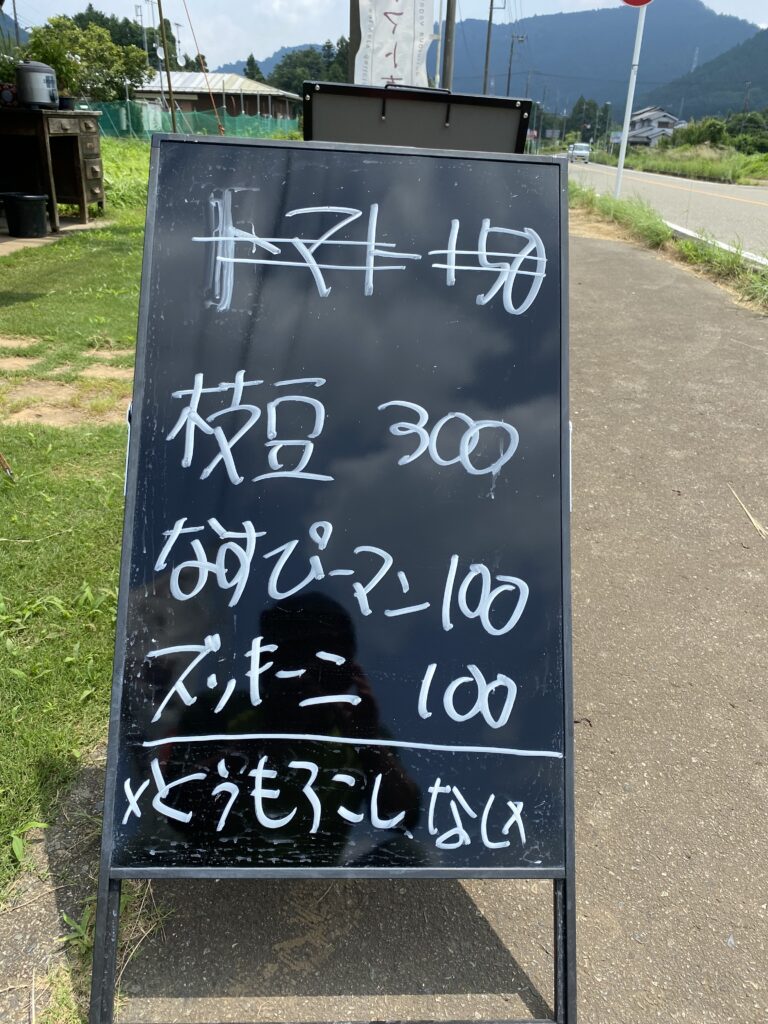 トマト 150
枝豆 300
なす ピーマン 100
ズッキーニ 100
xとうもろこし、ないx